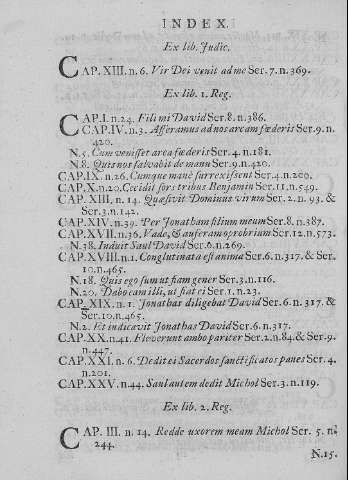 INDEX.
Ex lib. Judic.
CAP. XIII. n. 6. Vir Dei venit ad me Ser. 7. n. 369.
Ex lib. 1. Reg.
CAP. I. n. 24. Fili mi David Ser. 8. n. 386.
CAP. IV. n. 3. Afferamus ad nos arcam fœderis Ser. 9. n.
420.
N. 5. Cum venisset arca fœderis Ser. 4. n. 181.
N. 8. Quis nos salvabit de manu Ser. 9. n. 420.
CAP. IX. n. 26. Cumque manè surrexissent Ser. 4. n. 209.
CAP. X. n. 20. Cecidit sors tribus Benjamin Ser. 11. n. 549.
CAP. XIII. n. 14. Quæsivit Dominus virum Ser. 2. n. 93. &
Ser. 3. n. 142.
CAP. XIV. n. 39. Per Jonatham filium meum Ser. 8. n. 387.
CAP. XVII. n. 36. Vade, & auferam opprobrium Ser. 12. n. 573.
N. 38. Induit Saul David Ser. 6. n. 269.
CAP. XVIII. n. 1. Conglutinata est anima Ser. 6. n. 317. & Ser.
10. n. 465.
N. 18. Quis ego sum ut fiam gener Ser. 3. n. 116.
N. 20. Dabo eam illi, ut fiat ei Ser. 1. n. 23.
CAP. XIX. n. 1. Jonathas diligebat David Ser. 6. n. 317. &
Ser. 10. n. 465.
N. 2. Et indicavit Jonathas David Ser. 6. n. 317.
CAP. XX. n. 41. Fleverunt ambo pariter Ser. 2. n. 84. & Ser. 9.
n. 447.
CAP. XXI. n. 6. Dedit ei Sacerdos sanctificatos panes Ser. 4.
n. 201.
CAP. XXV. n. 44. Saul autem dedit Michol Ser. 3. n. 119.
Ex lib. 2. Reg.
CAP. III. n. 14. Redde uxorem meam Michol Ser. 5. nº
244.
N. 15.